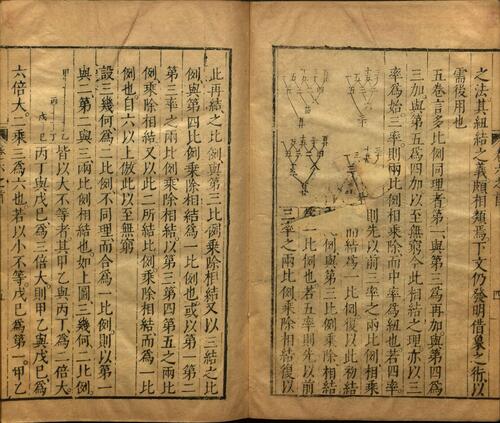 之法其紐結之義頗相類焉下文仍發明借象之術以
需後用也
五卷言多比例同理者第一與第三爲再加與第四爲
三加與第五爲四加以至無窮今此相結之理亦以三
率爲始三率則兩比例相乘除而中率爲紐也若四率
則先以前三率之兩比例相乘
而結爲一比例復以此初結
比例與第三比例乘除而結
爲一比例也若五率則先以前
三率之兩比例乘除相結後以
此再結之比例與第三比例乘除相結又以三結之比
例與第四比例乘除相結爲一比例也或以第一第二
第三率之兩比例乘除相結以第三第四第五之兩比
例乘除相結又以此二所結比例乘除相結而爲一比
例也自六以上倣此以至無窮
設三幾何爲二比例不同理而合爲一比例則以第一
與二第二與三兩比例相結也如上圖三幾何二比例
皆以大不等者其甲乙與丙丁爲二倍大
丙丁與戊己爲三倍大則甲乙與戊己爲
六倍大二乘三爲六也若以小不等戊己爲第一甲乙
甲 乙
丙 丁
戊 己
四
五